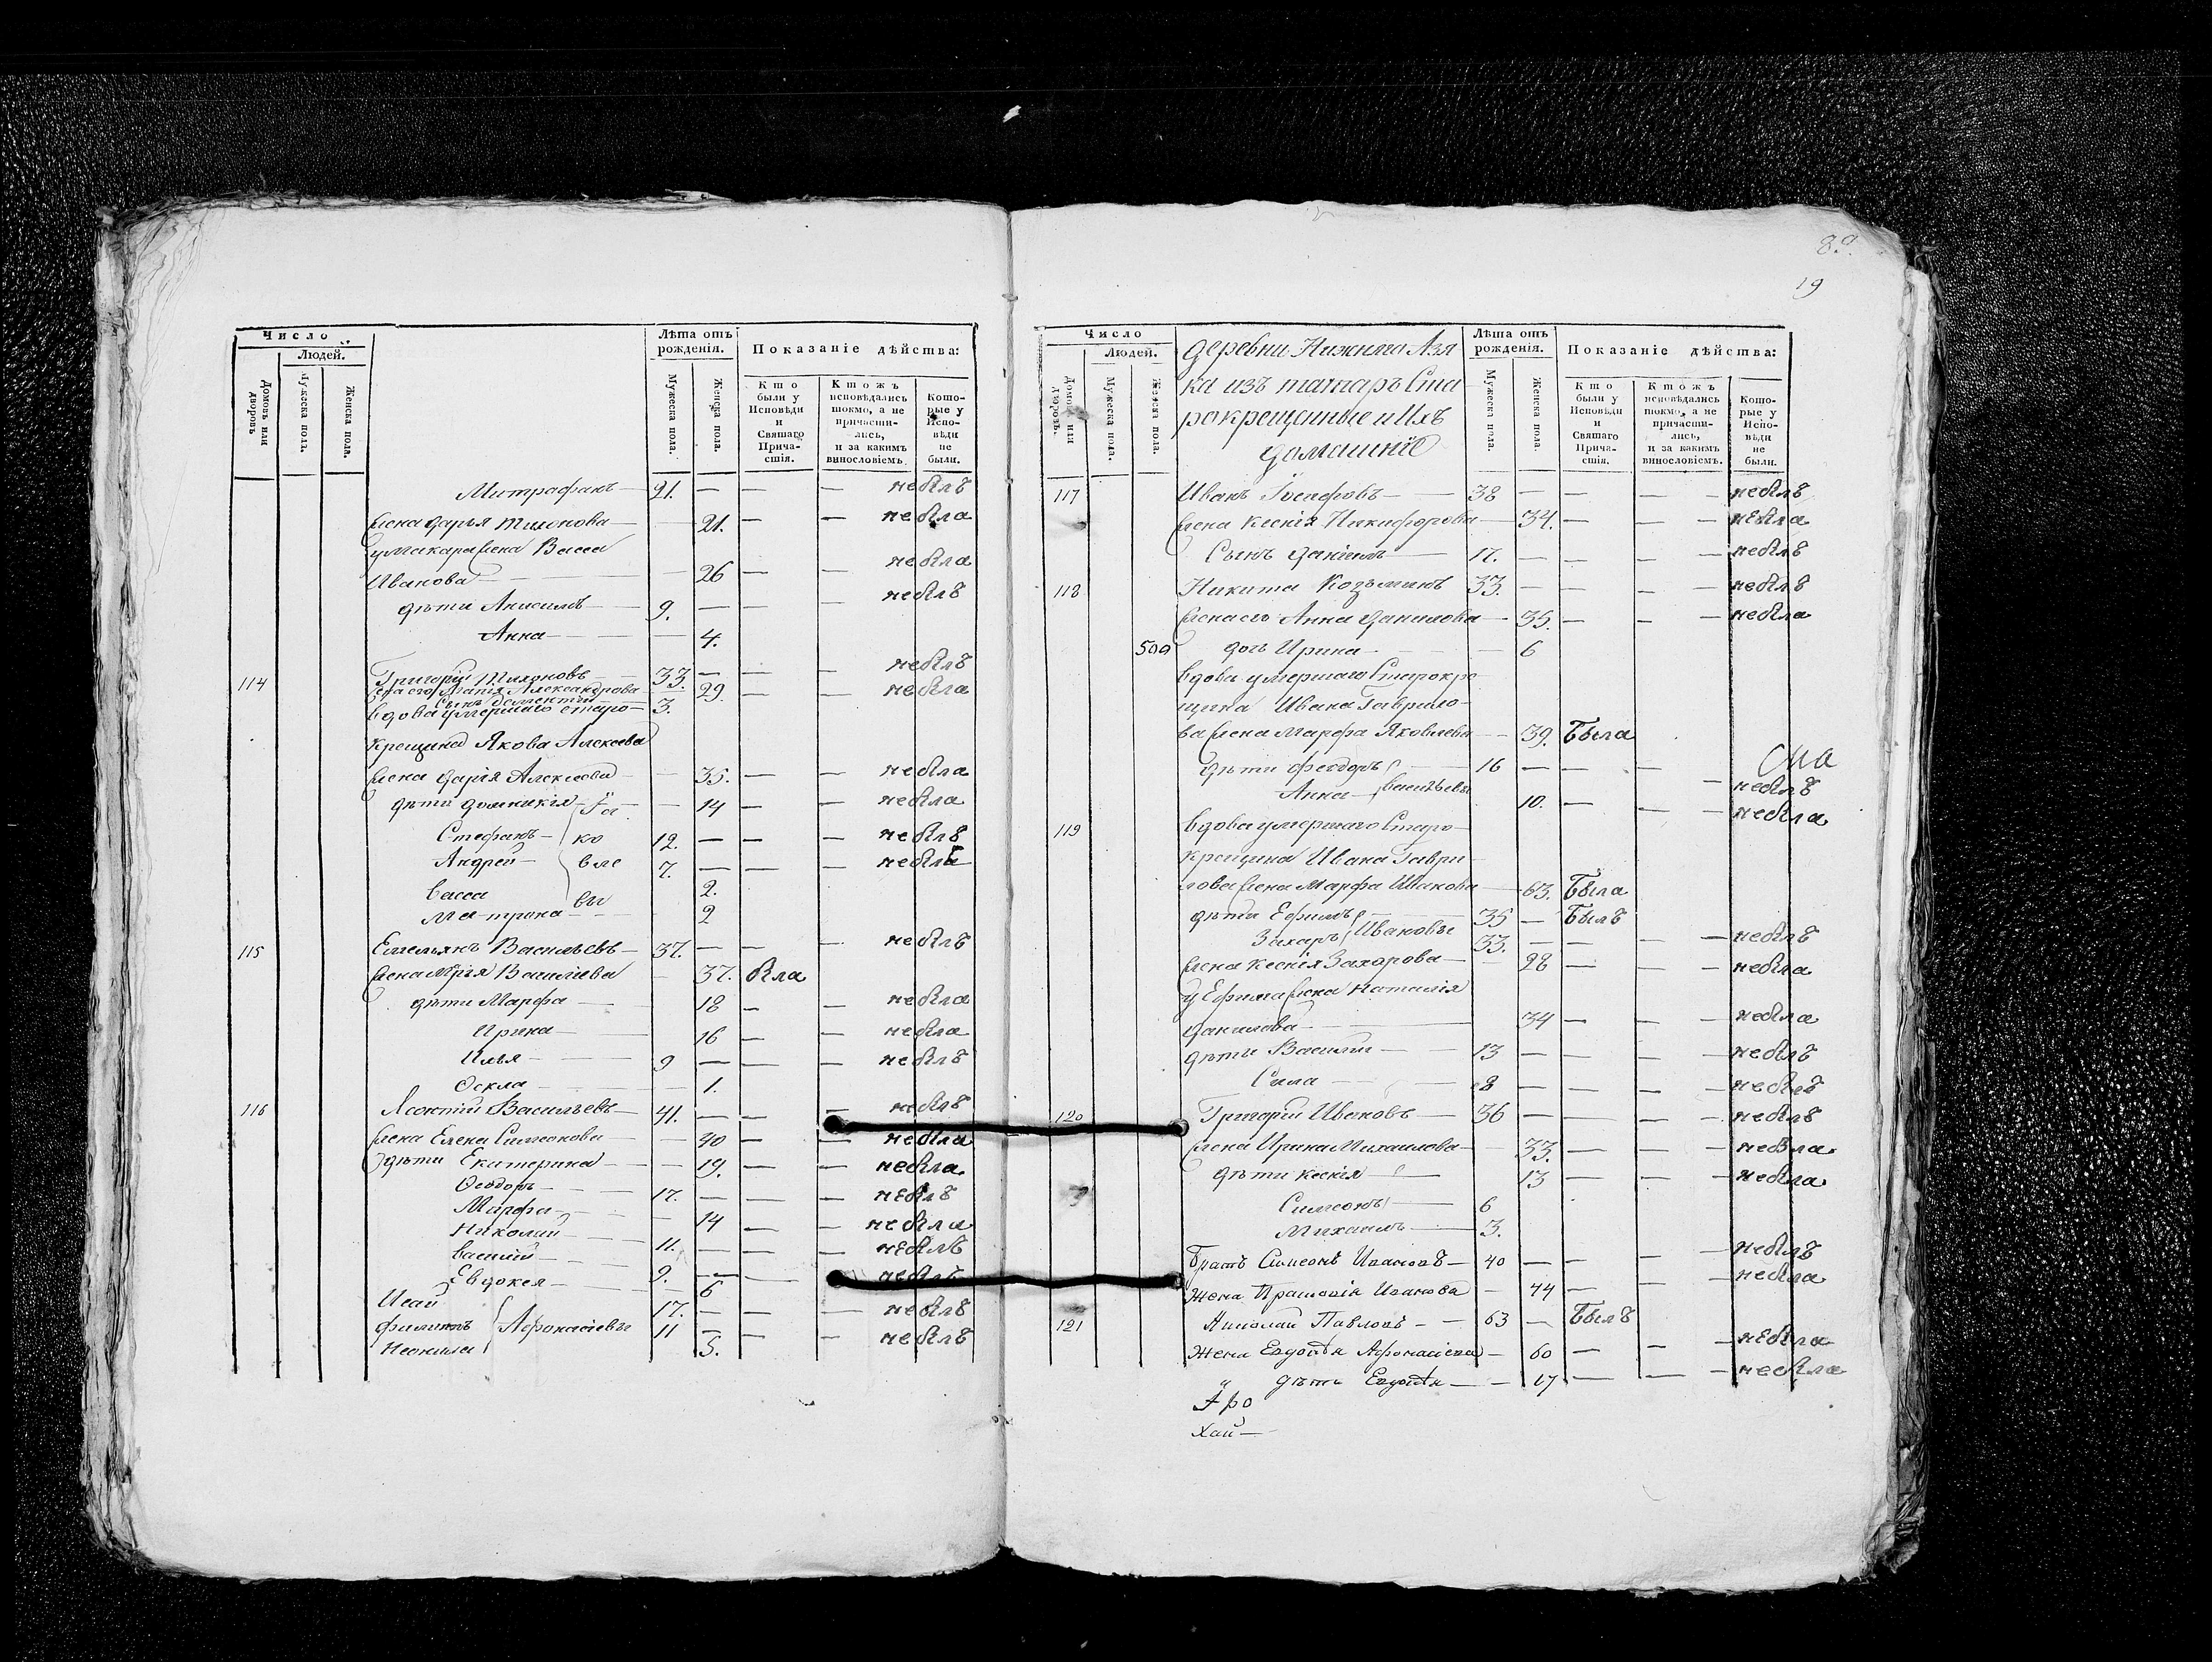 Число
Людей.
Домовъ или дворовъ
Мужеска пола.
Женска пола.
Лѣта отъ рожденія.
Мужеска пола.
Женска пола.
Показаніе дѣйства:
Кто были у Исповѣди и Святаго Причастія.
Ктожъ исповѣдались токмо, а не причастились, и за какимъ винословіемъ
Которые у Исповѣди не были.
Митрофанъ — 21. — — — небылъ
жена дарья тихонова — — 21. — — небыла
умакара жена Васса
Иванова — — 26 — — небыла
дѣти Анисимъ — 9. — — — небылъ
Анна — — 4.
114 Григорій Тихоновъ — 33. — — — небылъ
жена его Агапія Александрова — 29. — — небыла
Сынъ — 3.
вдова умершаго старо-
крещина Якова Алексеева
жена дарія Алексеева — — 35. — — небыла
дѣти домникія — Яа — — 14 — — небыла
Стефанъ — ко 12. — — — небылъ
Андрей — вле 7. — — — небылъ
васса вы 2.
Матрона — 2
115 Емельянъ Васильевъ — 37. — — — небылъ
жена Мрія Василиева — 37. была
дѣти Марфа — 18 — — небыла
Ирина — 16 — — небыла
Илья — 9 — — — небылъ
Ѳекла — — 1.
116 Леонтій Васильевъ — 41. — — — небылъ
жена Елена Симеонова — — 40 — — небыла
дѣти Екатерина — — 19. — — небыла
Ѳеодоръ — 17. — — — небылъ
Марфа — — 14 — — небыла
Николай — 11. — — — небылъ
василій — 9. — — — небылъ
Евдокея — — 6
Исай 17. — — — небылъ
филипъ Афонасіевы 11 — — — небылъ
Неонила 5.
89
19
Число
Людей.
Домовъ или дворовъ.
Мужеска пола.
Женска пола.
деревни Нижняго Азя
ка изъ татаръ Ста
рокрещенные и Ихъ
домашніе
Лѣта отъ рожденія.
Мужеска пола.
Женска пола.
Показаніе дѣйства:
Кто были у Исповѣди и Святаго Причастія.
Ктожъ исповѣдались токмо, а не причастились, и за какимъ винословіемъ.
Которые у Исповѣди не были.
117 Иванъ Іосифовъ — 38 — — — — небылъ
жена ксенія Никифорова — 34. — — — небыла
Сынъ даніилъ — 17. — — — небылъ
118 Никита Козьминъ 33. — — — — небылъ
жена его Анна данилова — 35. — — — небыла
500 дочь Ирина — — 6
вдова умершаго Старокре
щина Ивана Гаврило-
ва жена Марфа Яковлева — — 39. Была
дѣти феодоръ — 16 — — — — небылъ
Анна — васильевы 10. — — небыла
119 вдова умершаго Старо-
крещина Ивана Гаври-
лова жена Марфа Иванова — 63. Была
дѣти Ефимъ — 35 — Былъ
Захаръ Ивановы 33. — — — — небылъ
жена ксенія Захарова — 28 — — — небыла
у Ефима жена Наталія
данилова — 34 — — — небыла
дѣти Василій — 13 — — — — небылъ
Сила — 8 — — — — небылъ
120 Григорій Ивановъ — 36 — — — — небылъ
жена Ирина Михаилова — 33. — — — небыла
дѣти ксенія — 13 — — — небыла
Симеонъ — 6
Михаилъ — 3.
Братъ Симеонъ Ивановъ — 40 — — — — небылъ
Жена Прасковія Иванова — 44 — — — небыла
121 Николай Павловъ — — 63 — Былъ
Жена Евдокія Афонасіева — 60 — — — небыла
дѣти Евдокія — — 17 — — — небыла
хаи —